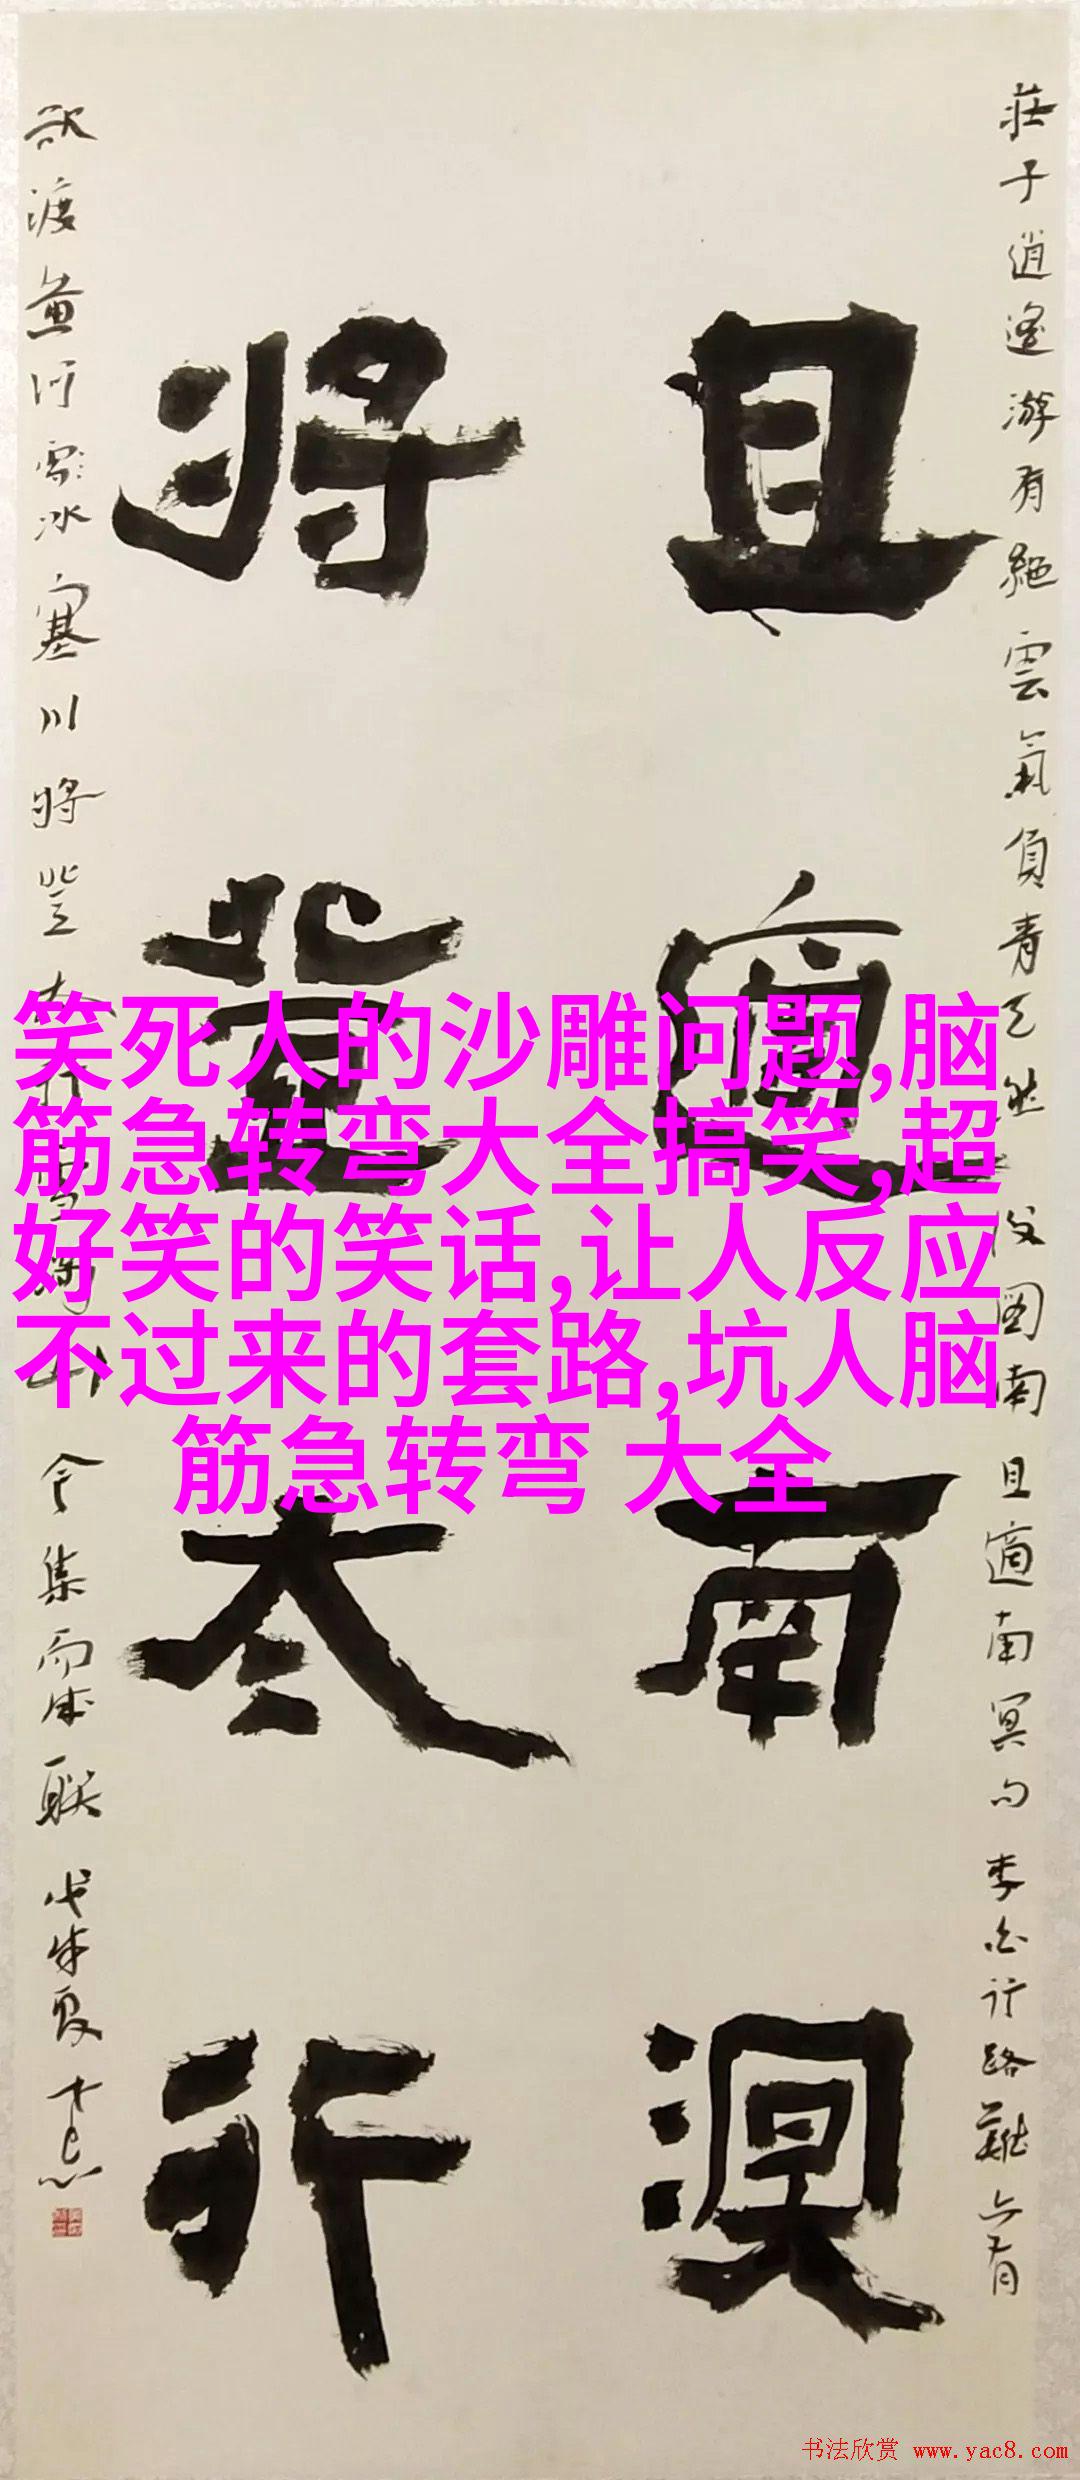 莊子逍遙游有絕雲氣負青天然後圖南且適南冥句李白行路難亦有
且適南溟
將登太行
欲渡黃河冰塞川將登太行雪滿山今集而成聯戊戌夏
笑死人的沙雕问题,脑
筋急转弯大全搞笑,超
好笑的笑话,让人反应
不过来的套路,坑人脑
筋急转弯 大全
书法欣赏 www.yac8.com